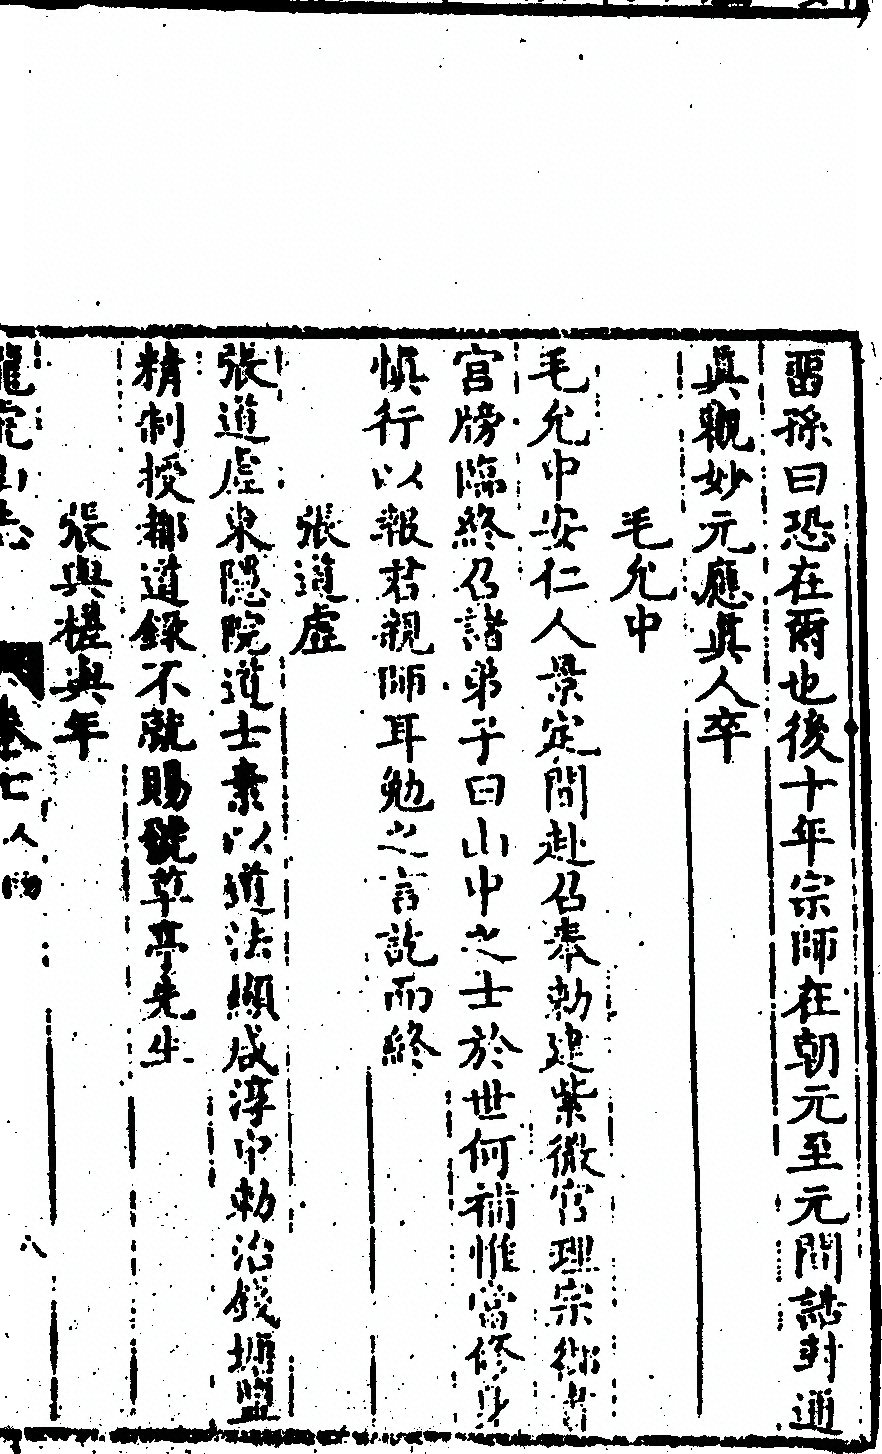 畱孫曰恐在爾也後十年宗師在朝元至元間誥封通
眞觀妙元應眞人卒
毛允中
毛允中安仁人景定間赴召奉勅建紫微宮理宗御書
宮牓臨終召諸弟子曰山中之士於世何補惟當修身
慎行以報君親師耳勉之言訖而終
張道虛
張道虛東隱院道士素以道法顯咸淳中勅治錢塘盬
精制授都道錄不就賜號草亭先生
張與槎與年
龍虎山志 卷七人物 八